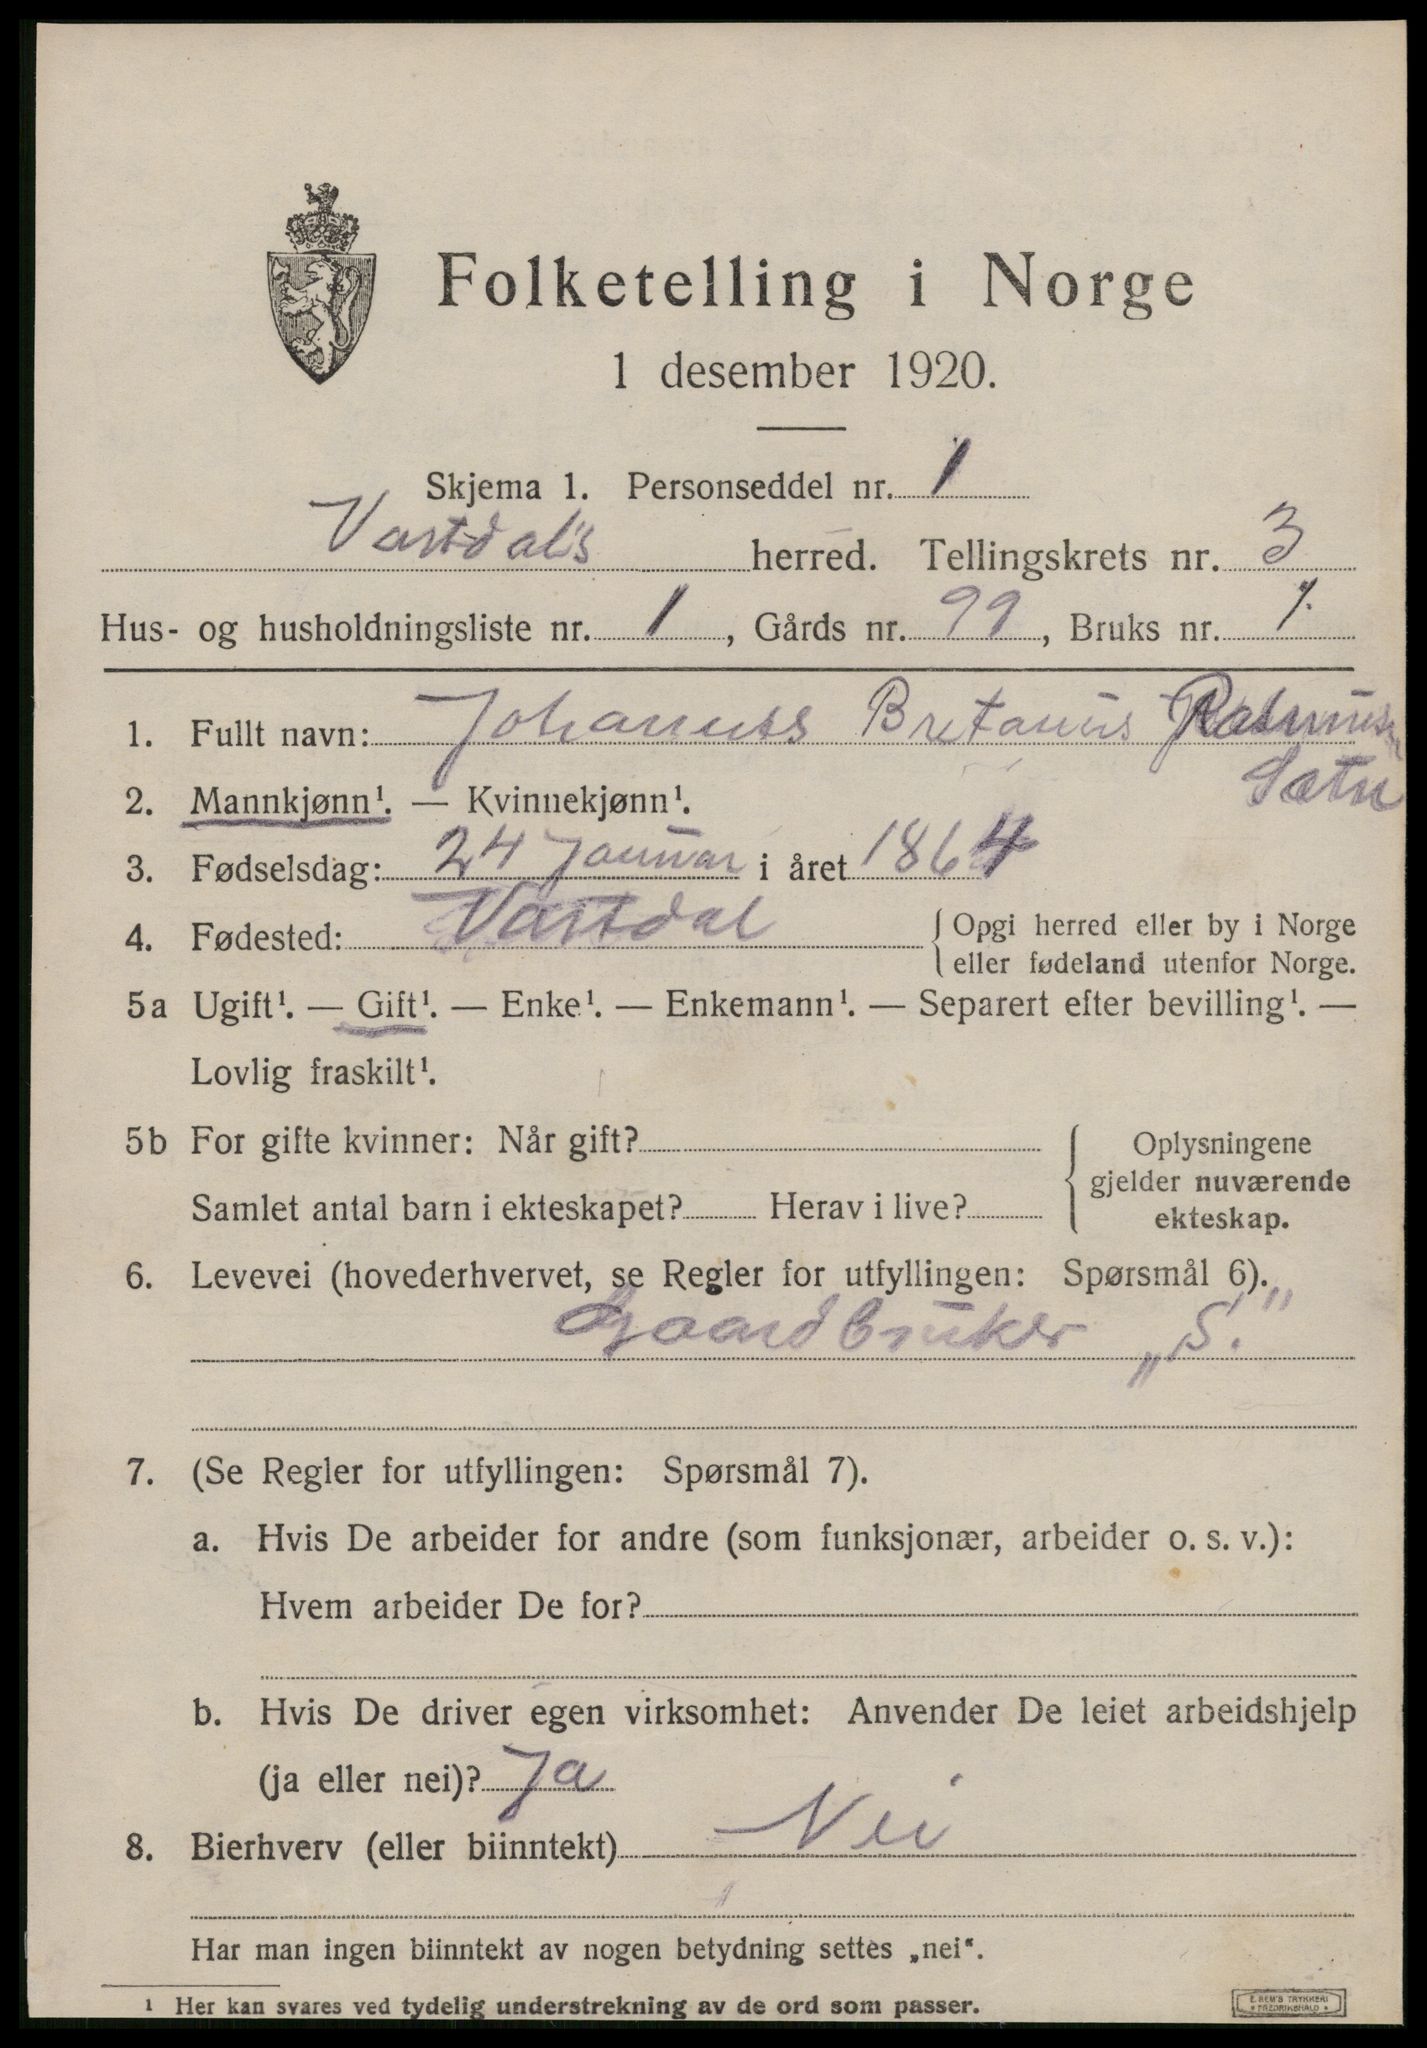 Folketelling i Norge
1 desember 1920.
Skjema 1. Personseddel nr. 1
Vartdals herred. Tellingskrets nr. 3
Hus- og husholdningsliste nr. 1, Gårds nr. 99, Bruks nr. 1.
1. Fullt navn: Johannes Bretanus Rasmussen
Sætre
2. Mannkjønn¹. — Kvinnekjønn¹.
3. Fødselsdag: 24 Januar i året 1864
4. Fødested: Vartdal { Opgi herred eller by i Norge
eller fødeland utenfor Norge.
5a Ugift¹. — Gift¹. — Enke¹. — Enkemann¹. — Separert efter bevilling¹. —
Lovlig fraskilt¹.
5b For gifte kvinner: Når gift? { Oplysningene
gjelder nuværende
Samlet antal barn i ekteskapet? Herav i live?
ekteskap.
6. Levevei (hovederhvervet, se Regler for utfyllingen: Spørsmål 6).
Gaardbruker „S."
7. (Se Regler for utfyllingen: Spørsmål 7).
a. Hvis De arbeider for andre (som funksjonær, arbeider o. s. v.):
Hvem arbeider De for?
b. Hvis De driver egen virksomhet: Anvender De leiet arbeidshjelp
(ja eller nei)? Ja
8. Bierhverv (eller biinntekt) Nei
Har man ingen biinntekt av nogen betydning settes „nei".
¹ Her kan svares ved tydelig understrekning av de ord som passer.
E. SEM'S TRYKKERI
FREDRIKSHALD